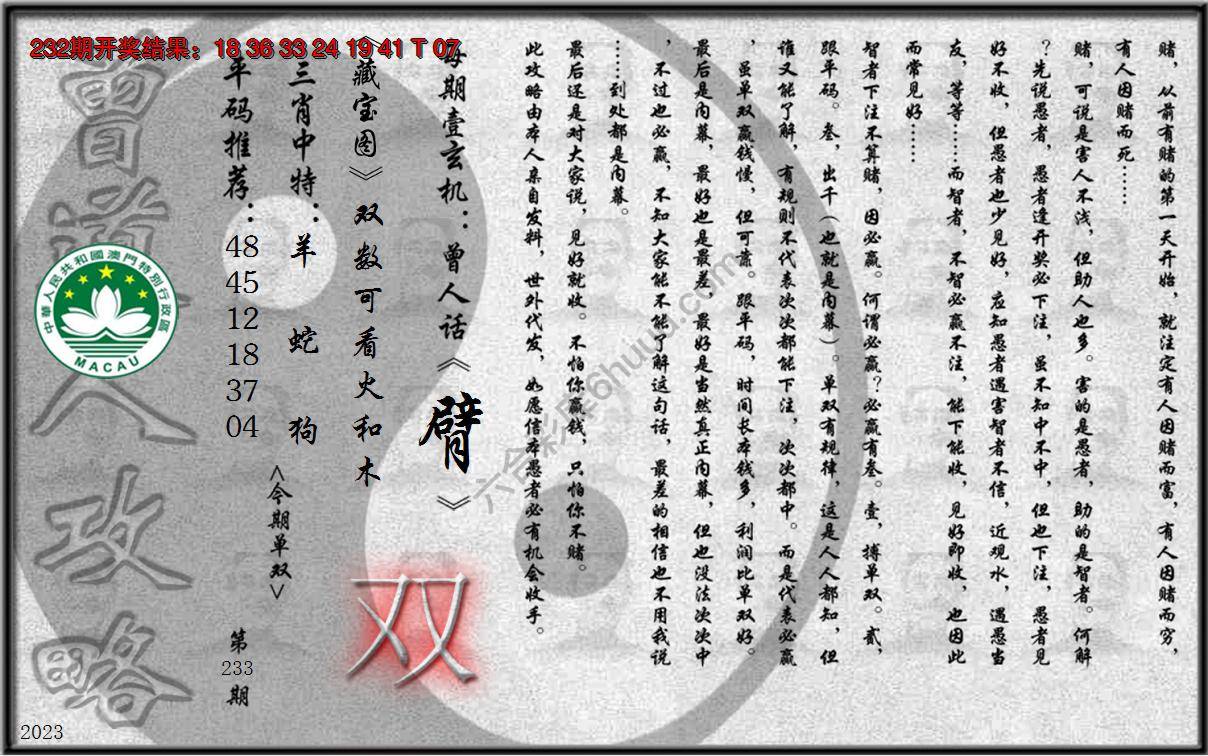 232期开奖结果：18 36 33 24 19 41 T 07
赌，从前有赌的第一天开始，就注定有人因赌而富，有人因赌而穷，
有人因赌而死……
赌，可说是害人不浅，但助人也多。害的是愚者，助的是智者。何解
？先说愚者，愚者逢开奖必下注，虽不知中不中，但也下注，愚者见
好不收，但愚者也少见好，应知愚者遇害智者不信，近观水，遇愚当
友，等等……而智者，不智必赢不注，能下能收，见好即收，也因此
而常见好……
智者下注不算赌，因必赢。何谓必赢？必赢有叁。壹，搏单双。贰，
跟平码。叁，出千（也就是内幕）。单双有规律，这是人人都知，但
谁又能了解，有规则不代表次次都能下注，次次都中。而是代表必赢
，虽单双赢钱慢，但可靠。跟平码，时间长本钱多，利润比单双好。
最后是内幕，最好也是最差，最好是当然真正内幕，但也没法次次中
，不过也必赢，不知大家能不能了解这句话，最差的相信也不用我说
……到处都是内幕。
最后还是对大家说，见好就收。不怕你赢钱，只怕你不赌。
此攻略由本人亲自发料，世外代发，如愿信本愚者必有机会收手。
每期壹玄机：曾人话《臂》
《藏宝图》双数可看火和木
双
三肖中特：羊 蛇 狗
<今期单双>
平码推荐：48 45 12 18 37 04
第233期
曾道人攻略
中華人民共和國澳門特別行政區
MACAU
2023
六合彩库6huuu.com